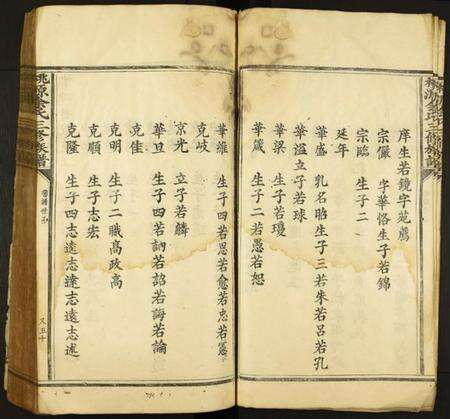 庠生若鏡字苑鷹
宗儼 字華恪生子若錦
宗臨 生子二
廷年
華盛 乳名昭生子三若朱若呂若孔
華溢立子若球
華梁 生子若瓊
華箴 生子二若愚若恕
華維 生子四若思若愈若忠若憲
克岐
京光 立子若麟
華旦 生子四若訥若詔若誨若論
克佳
克明 生子二職高政高
克順 生子志宏
克隆 生子四志遠志達志遠志述
桃源余氏三修族譜
又五十